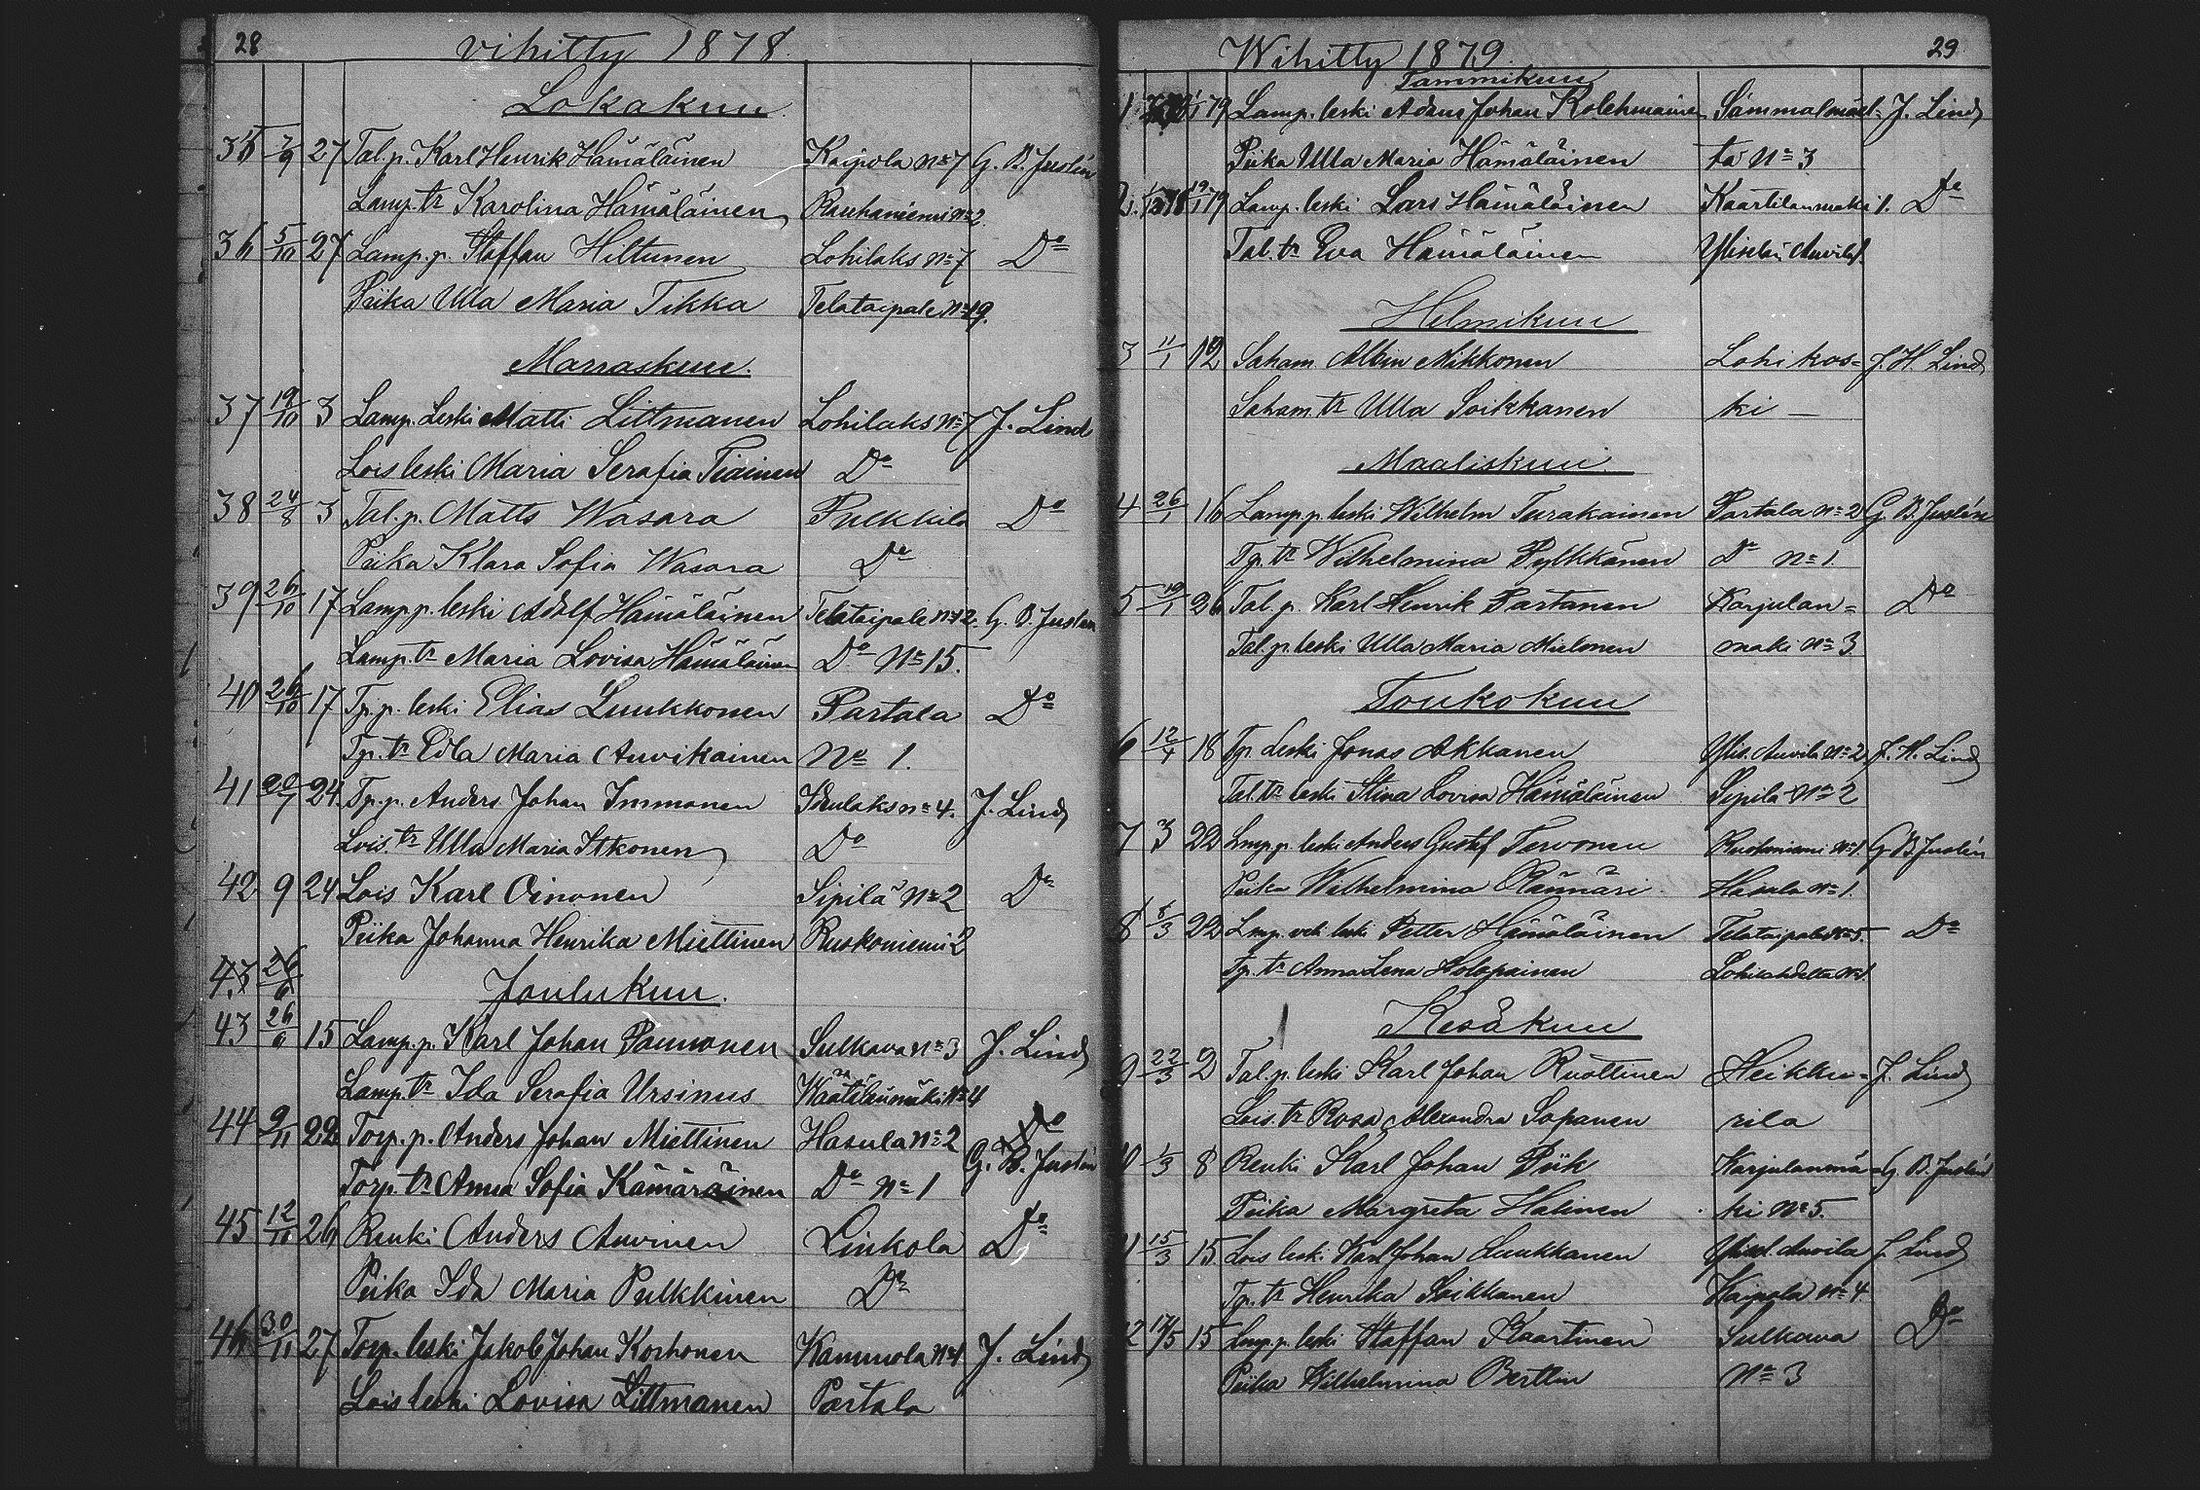 28
vihitty 1878.
Lokakuu.
35 7/9 27 Tal.p. Karl Henrik Hämäläinen Kaipola No 7 G. B. Juslén
Lamp. tr Karolina Hämäläinen Rauhaniemi No 2
36 5/10 27 Lamp.p. Staffan Hiltunen Lohilaks No 7 Do
Piika Ulla Maria Tikka Telataipale No 19.
Marraskuu.
37 19/10 3 Lamp. Leski Matti Littmanen Lohilaks No 7 J. Lind
Lois leski Maria Serafia Tiainen Do
38 24/8 3 Tal.p. Matts Wasara Pulkkila Do
Piika Klara Sofia Wasara Do
39 26/10 17 Lamp p. leski Adolf Hämäläinen Telataipale No 12. G. B. Juslén
Lamp. tr Maria Lovisa Hämäläinen Do No 15.
40 26/10 17 Tp.p. leski Elias Luukkonen Partala Do
Tp. tr Edla Maria Auvikainen No 1.
41 20/7 24. Tp.p. Anders Johan Immonen Iitulaks No 4. J. Lind
Lois. tr Ulla Maria Itkonen Do
42 9 24 Lois Karl Oinonen Sipilä No 2 Do
Piika Johanna Henrika Miettinen Ruskoniemi 2
43 26/6
Joulukuu.
43 26/6 15 Lamp.p. Karl Johan Paunonen Sulkava No 3 J. Lind
Lamp. tr Ida Serafia Ursinus No 4
44 9/11 22 Torp.p. Anders Johan Miettinen Hasula No 2 Do
G. B. Juslén
Torp. tr Anna Sofia Kämäräinen Do No 1
45 12/10 26 Renki Anders Auvinen Linkola Do
Piika Ida Maria Pulkkinen Do
46 30/11 27 Torp. leski Jakob Johan Korhonen Kammola No 1 J. Lind
Lois leski Lovisa Littmanen Partala
29
Wihitty 1879.
Tammikuu
1 19 Lamp. leski Adam Johan Kolehmainen Sammalmäel= J. Lind
Piika Ulla Maria Hämäläinen tä No 3
2. 19 Lamp. leski Lars Hämäläinen Kaartilanmäki 1. Do
Tal. tr Eva Hämäläinen
Helmikuu
3 11/1 12 Saham. Albin Nikkonen Lohikos= J. H. Lind
Saham. tr Ulla Soikkanen ki —
Maaliskuu
4 26/1 16 Lamp p. leski Wilhelm Turakainen Partala No 2 G. B. Juslén
Tp. tr Wilhelmina Pylkkänen Do No 1.
5 19/1 26 Tal. p. Karl Henrik Partanen Karjulan= Do
Tal. p. leski Ulla Maria Mielonen mäki No 3
Toukokuu
6 12/4 18 Tp. Leski Jonas Akkanen Ylis. Auvila No 2 J. H. Lind
Tal. tr leski Stina Lovisa Hämäläinen Sipilä No 2
7 3 22 Lmp p. leski Anders Gustaf Tervonen Ruskoniemi No 1 G B Juslén
Piika Wilhelmina Rännäri Hasula No 1.
8 8/3 22 Lmp. leski Petter Hämäläinen Telataipale No 5. Do
Tp. tr Anna Lena Holopainen Lohilahdelta No 1.
Kesäkuu
9 22/3 2 Tal. p. leski Karl Johan Ruottinen Heikku= J. Lind
Lois. tr Rosa Alexandra Sapanen rila
10 1/3 8 Renki Karl Johan Piik Karjulanmä= G B. Juslén
Piika Margreta Halinen ki No 5.
11 15/3 15 Lois leski Karl Johan Luukkanen Ylisel. Auvila J. Lind
Tp. tr Henrika Soikkanen Kaipola No 4
12 15 Lmp p. leski Staffan Kaartinen Sulkava Do
Piika Wilhelmina Berttin No 3